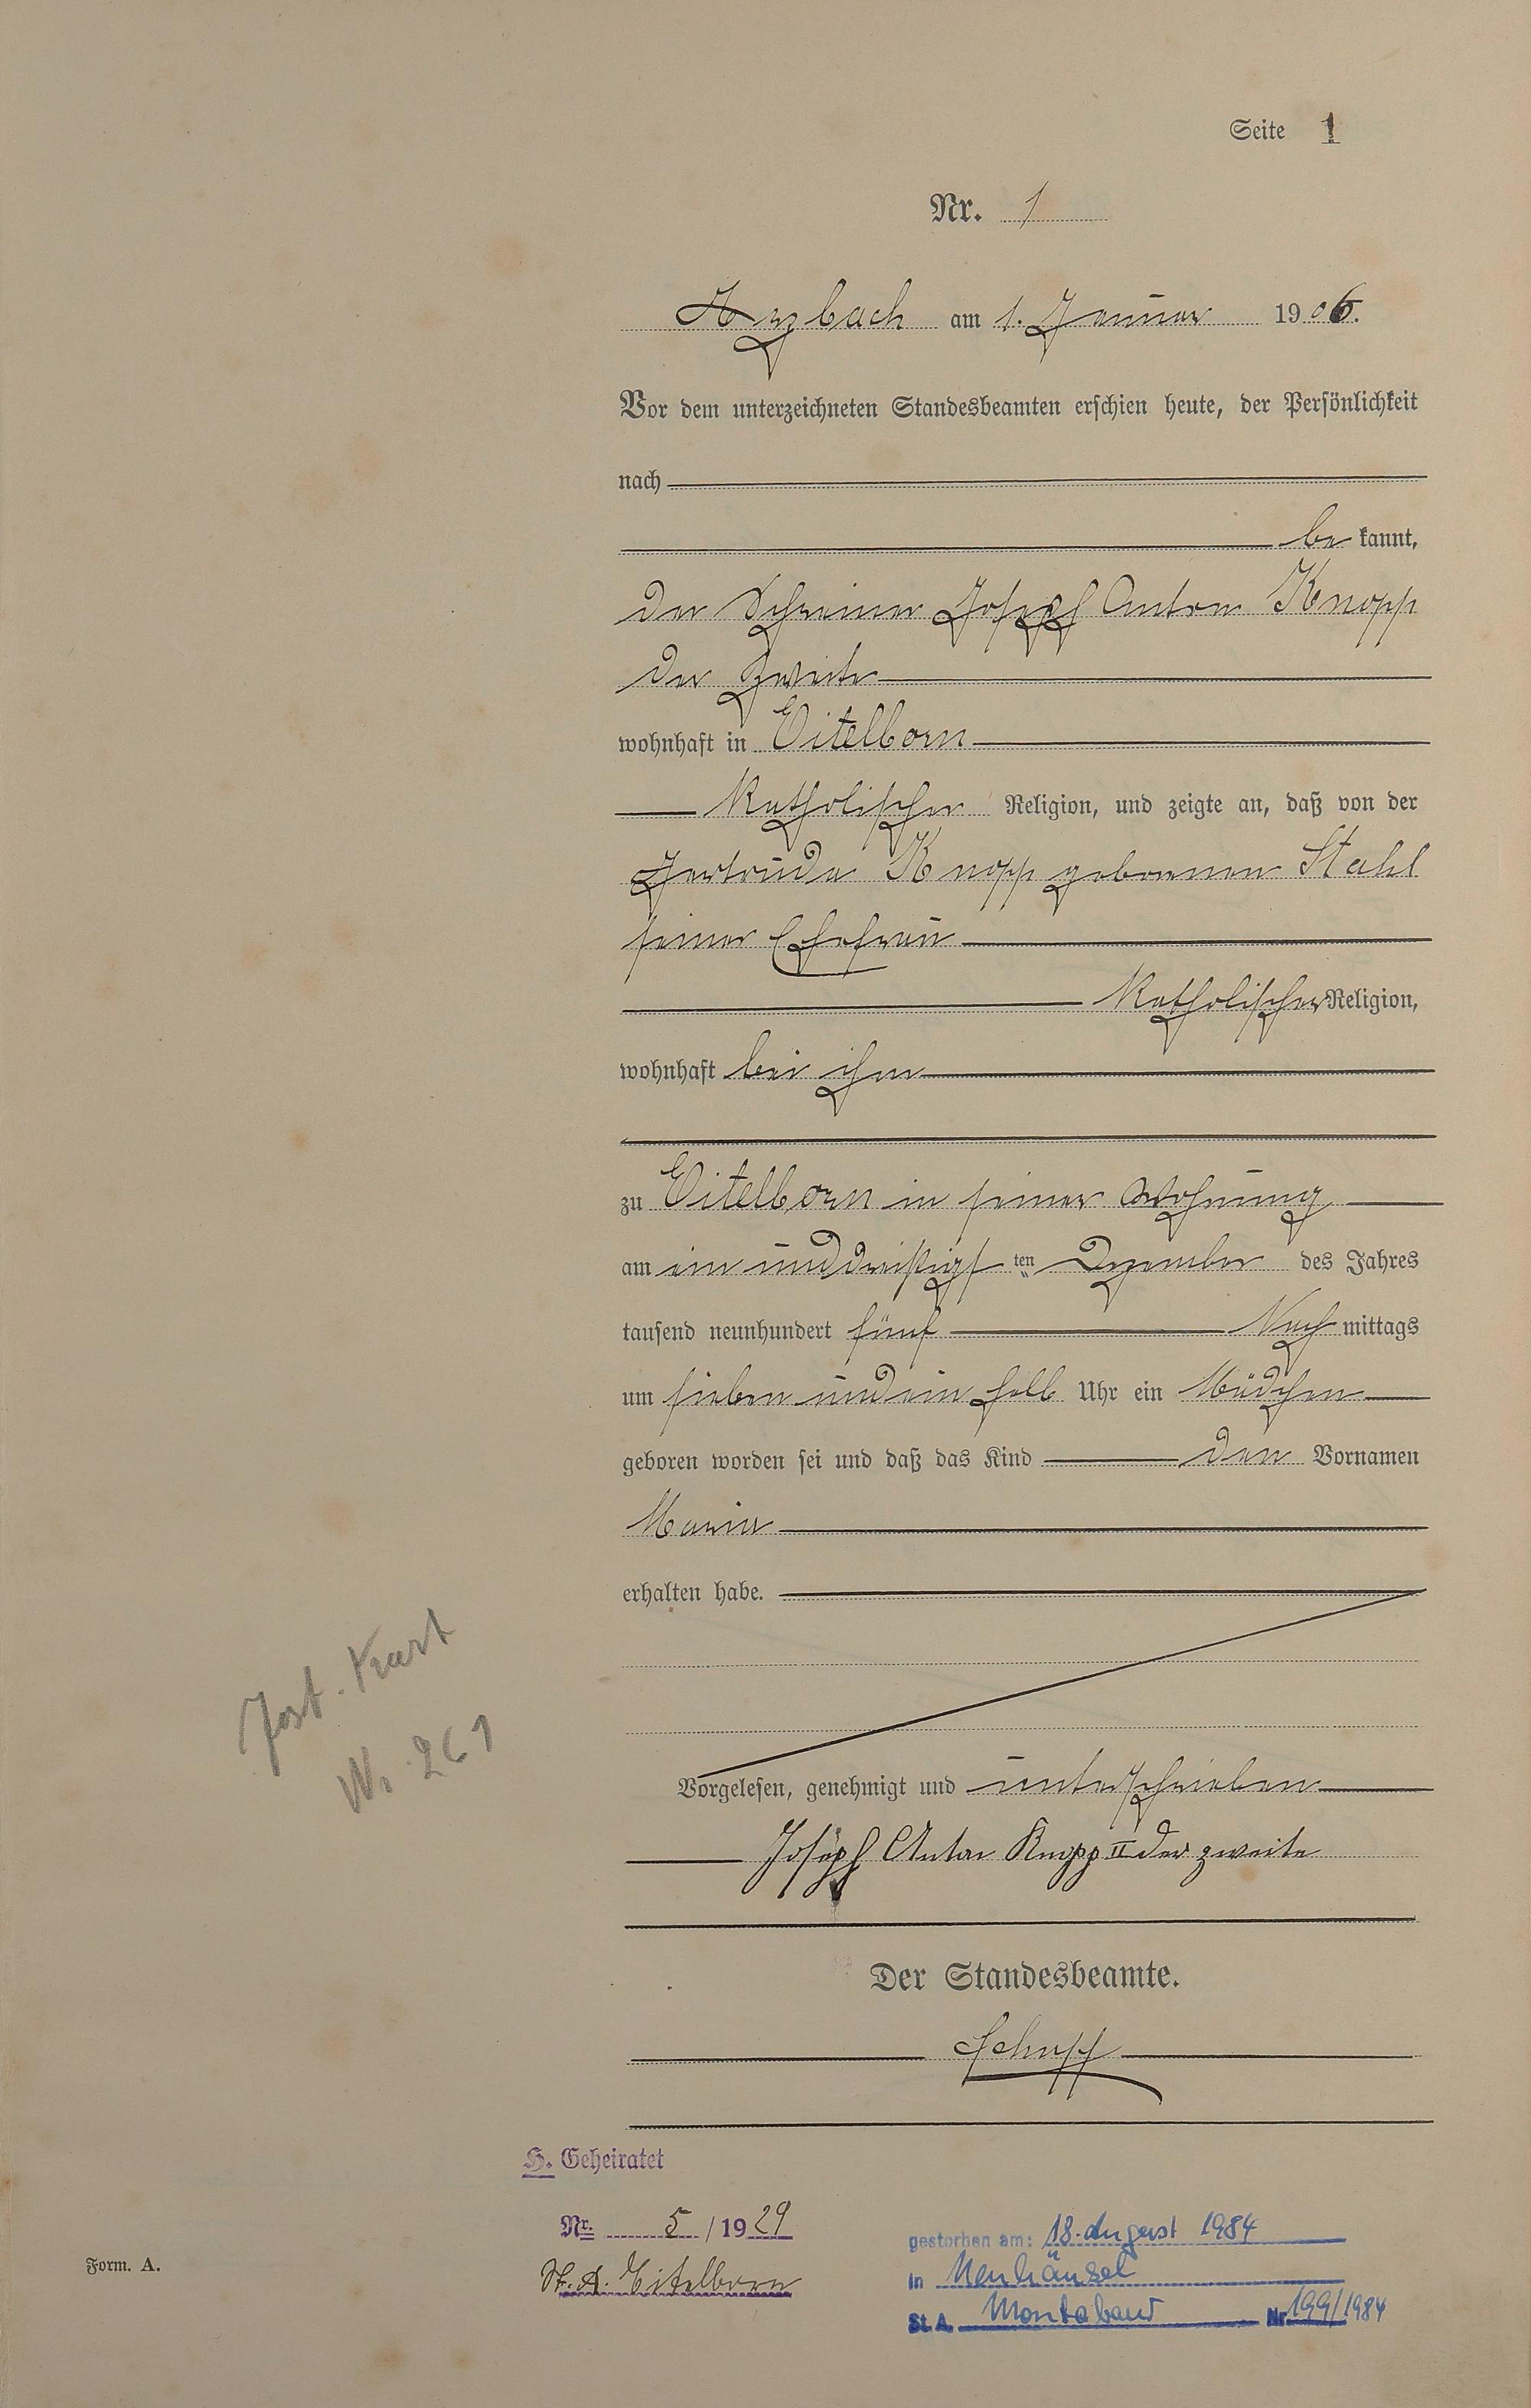 Seite 1
Nr. 1
Arzbach am 1. Januar 1906.
Vor dem unterzeichneten Standesbeamten erschien heute, der Persönlichkeit
nach
be kannt,
der Schreiner Joseph Anton Knopp
der Zweite
wohnhaft in Eitelborn
katholischer Religion, und zeigte an, daß von der
Gertrude Knopp geborenen Stahl
seiner Ehefrau
katholischer Religion,
wohnhaft bei ihm
zu Eitelborn in seiner Wohnung
am ein und dreißigsten Dezember des Jahres
tausend neunhundert fünf Nach mittags
um sieben und ein halb Uhr ein Mädchen
geboren worden sei und daß das Kind den Vornamen
Maria
erhalten habe.
Vorgelesen, genehmigt und unterschrieben
Joseph Anton Knopp II der zweite
Der Standesbeamte.
H. Geheiratet
Nr. 5/1929
St. A. Eitelborn
gestorben am: 18. August 1984
in Neuhäusel
St. A. Montabaur Nr. 199/1984
Form. A.